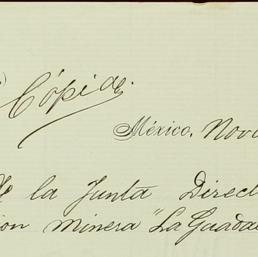 Cópia.
México, Nov
de la Junta Direct
ion Minera "La Guada